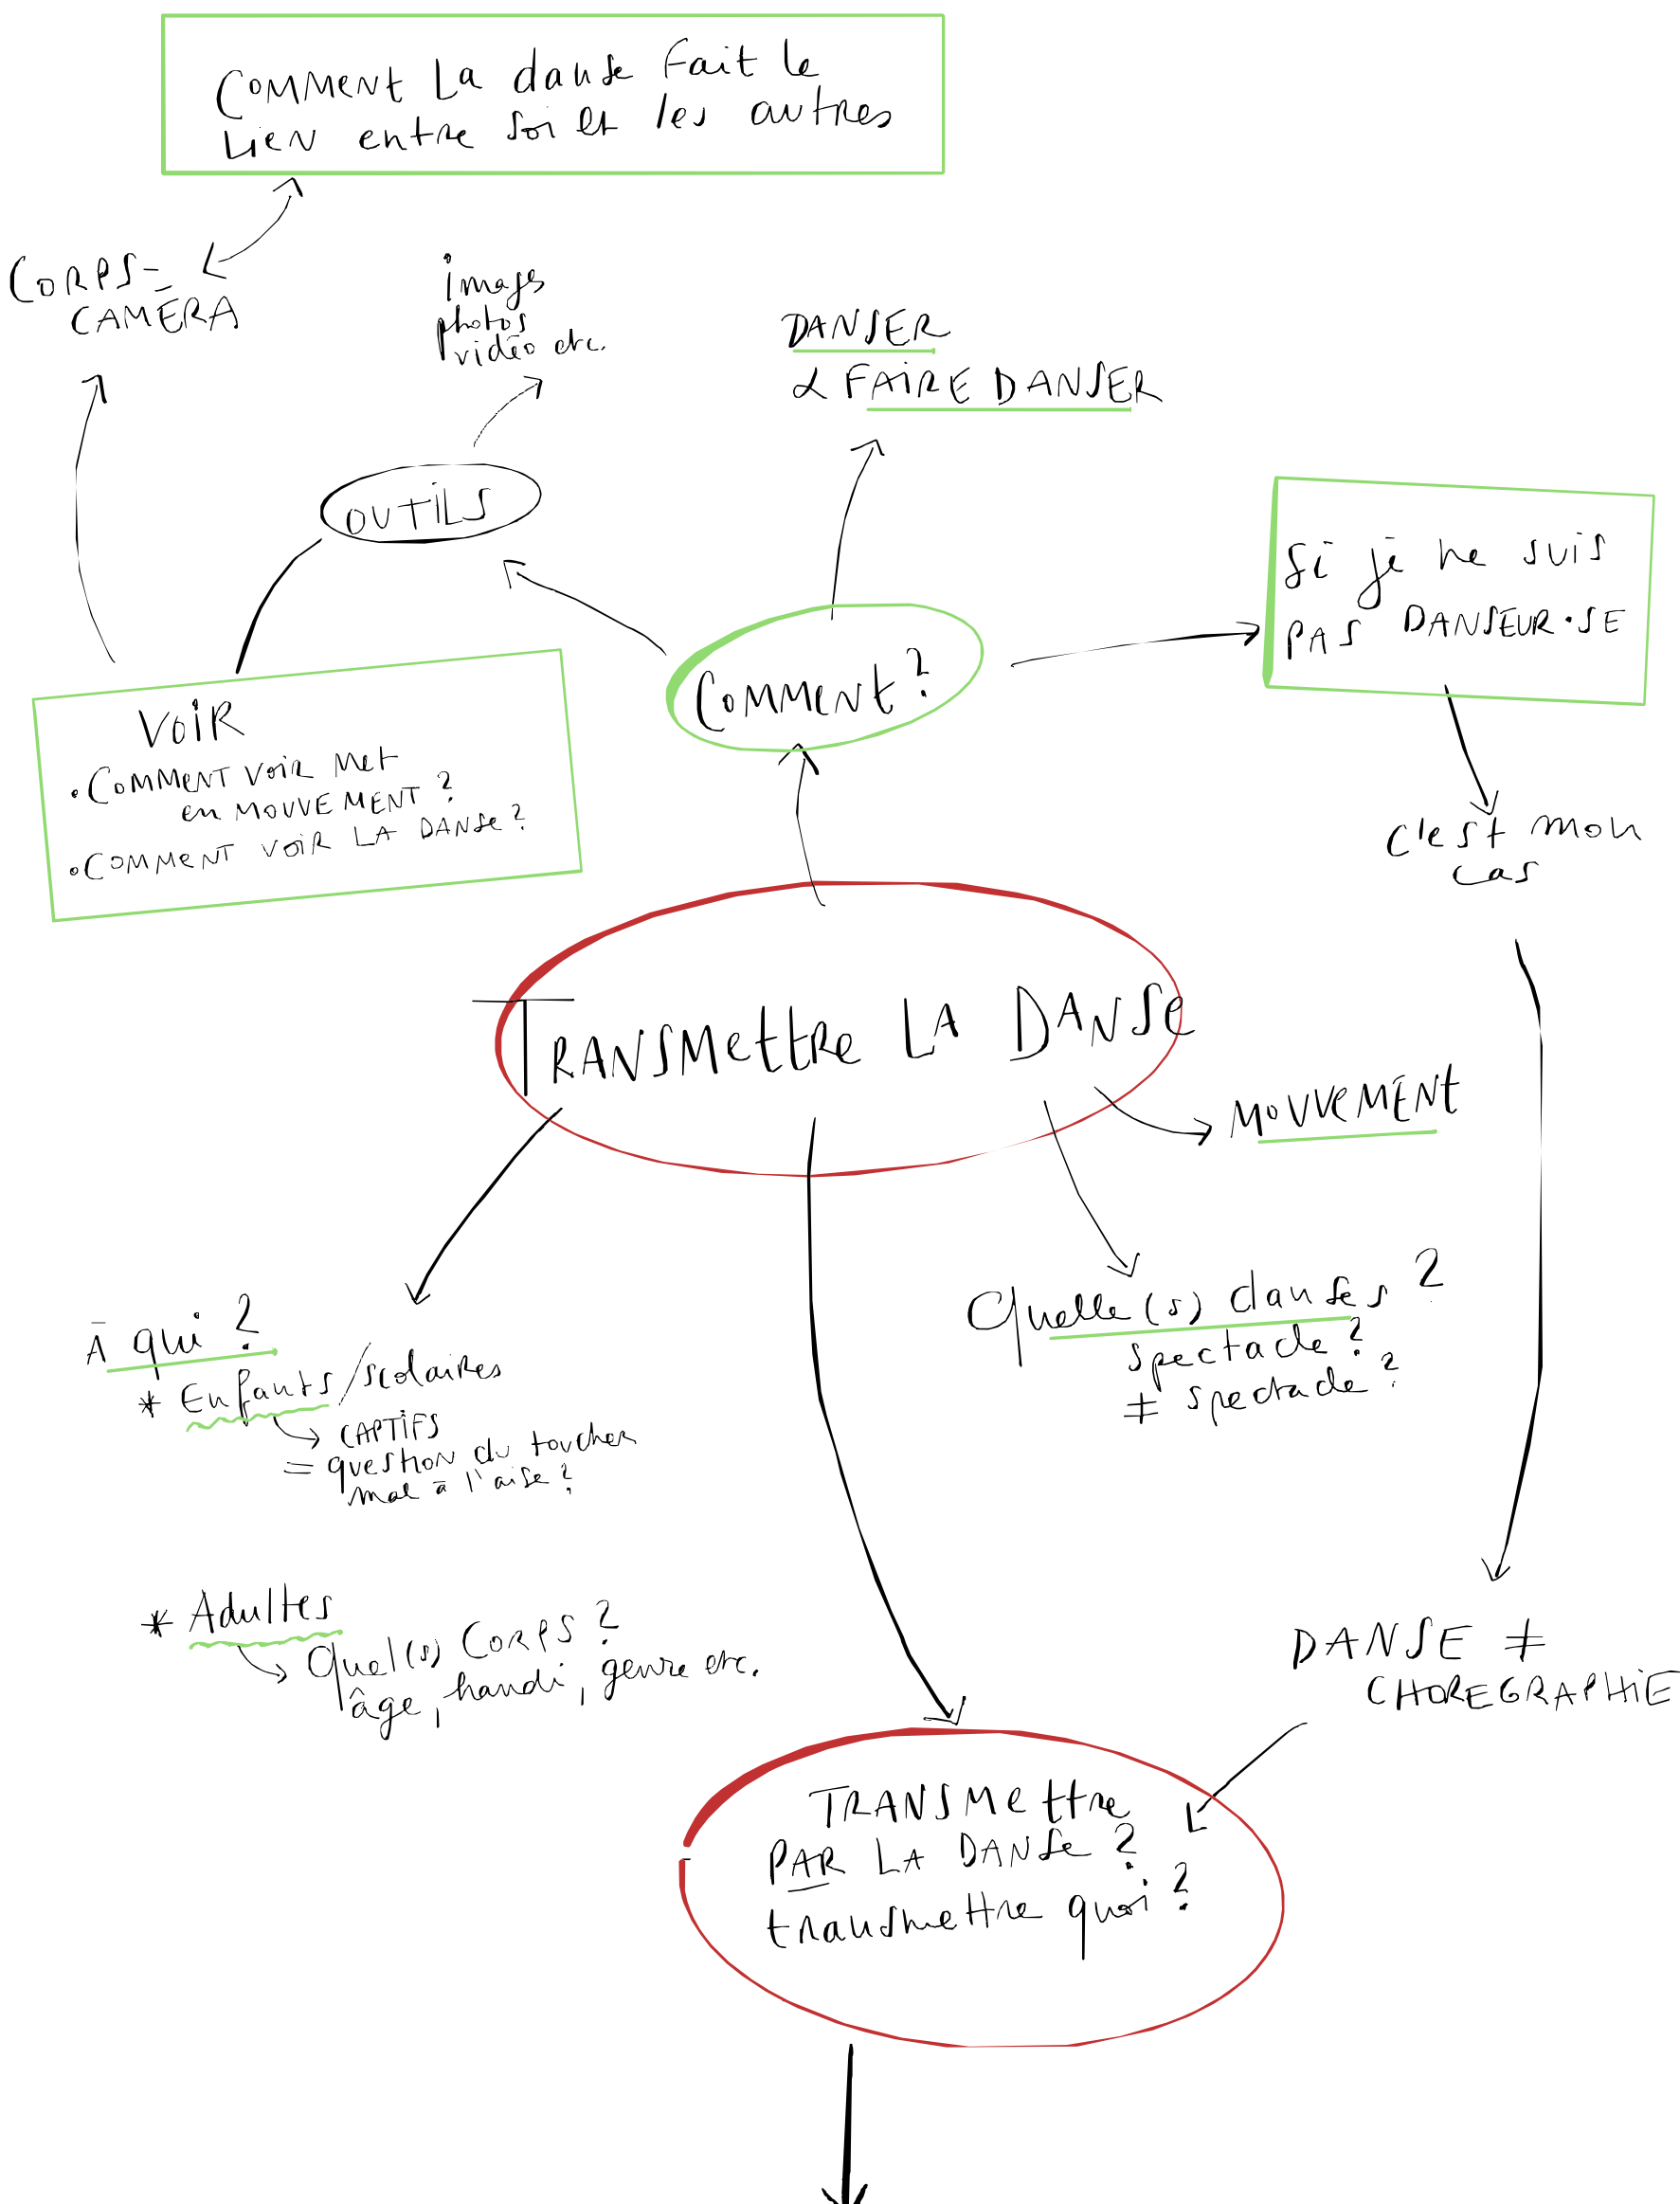 Comment La danse fait le
lien entre soi et les autres
CORPS-
CAMÉRA
images
photos
vidéo etc.
DANSER
& FAIRE DANSER
OUTILS
Si je ne suis
PAS DANSEUR·SE
Comment ?
VOIR
• Comment voir met
en mouvement ?
• Comment voir LA DANSE ?
c'est mon
cas
Transmettre LA DANSE
MOUVEMENT
Quelle(s) danses ?
spectacle ?
≠ spectacle ?
À qui ?
* Enfants/scolaires
CAPTIFS
= question du toucher
mal à l'aise ?
* Adultes
Quel(s) CORPS ?
âge, handi, genre etc.
DANSE ≠
CHOREGRAPHIE
TRANSMettre
PAR LA DANSE ?
transmettre quoi ?